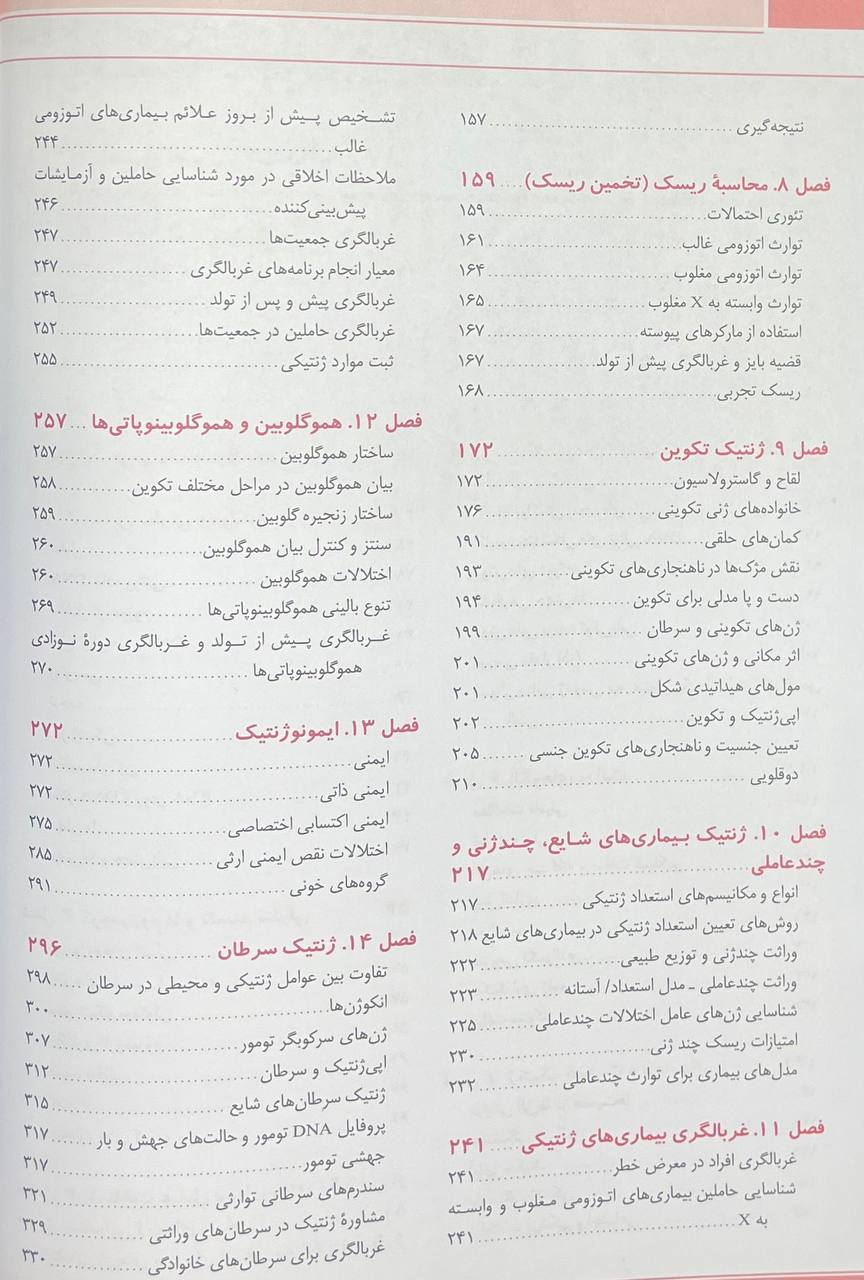 نتیجه‌گیری ........ ۱۵۷
فصل ۸. محاسبۀ ریسک (تخمین ریسک) .... ۱۵۹
تئوری احتمالات ........ ۱۵۹
توارث اتوزومی غالب ........ ۱۶۱
توارث اتوزومی مغلوب ........ ۱۶۴
توارث وابسته به X مغلوب ........ ۱۶۵
استفاده از مارکرهای پیوسته ........ ۱۶۷
قضیه بایز و غربالگری پیش از تولد ........ ۱۶۷
ریسک تجربی ........ ۱۶۸
فصل ۹. ژنتیک تکوین ........ ۱۷۲
لقاح و گاسترولاسیون ........ ۱۷۲
خانواده‌های ژنی تکوینی ........ ۱۷۶
کمان‌های حلقی ........ ۱۹۱
نقش مژک‌ها در ناهنجاری‌های تکوینی ........ ۱۹۳
دست و پا مدلی برای تکوین ........ ۱۹۴
ژن‌های تکوینی و سرطان ........ ۱۹۹
اثر مکانی و ژن‌های تکوینی ........ ۲۰۱
مول‌های هیداتیدی شکل ........ ۲۰۱
اپی‌ژنتیک و تکوین ........ ۲۰۲
تعیین جنسیت و ناهنجاری‌های تکوین جنسی ....... ۲۰۵
دوقلویی ........ ۲۱۰
فصل ۱۰. ژنتیک بیماری‌های شایع، چندژنی و
چندعاملی ........ ۲۱۷
انواع و مکانیسم‌های استعداد ژنتیکی ........ ۲۱۷
روش‌های تعیین استعداد ژنتیکی در بیماری‌های شایع ۲۱۸
وراثت چندژنی و توزیع طبیعی ........ ۲۲۲
وراثت چندعاملی ـ مدل استعداد/ آستانه ........ ۲۲۳
شناسایی ژن‌های عامل اختلالات چندعاملی ........ ۲۲۵
امتیازات ریسک چند ژنی ........ ۲۳۰
مدل‌های بیماری برای توارث چندعاملی ........ ۲۳۲
فصل ۱۱. غربالگری بیماری‌های ژنتیکی ..... ۲۴۱
غربالگری افراد در معرض خطر ........ ۲۴۱
شناسایی حاملین بیماری‌های اتوزومی مغلوب و وابسته
به X ........ ۲۴۱
تشخیص پیش از بروز علائم بیماری‌های اتوزومی
غالب ........ ۲۴۴
ملاحظات اخلاقی در مورد شناسایی حاملین و آزمایشات
پیش‌بینی‌کننده ........ ۲۴۶
غربالگری جمعیت‌ها ........ ۲۴۷
معیار انجام برنامه‌های غربالگری ........ ۲۴۷
غربالگری پیش و پس از تولد ........ ۲۴۹
غربالگری حاملین در جمعیت‌ها ........ ۲۵۲
ثبت موارد ژنتیکی ........ ۲۵۵
فصل ۱۲. هموگلوبین و هموگلوبینوپاتی‌ها ... ۲۵۷
ساختار هموگلوبین ........ ۲۵۷
بیان هموگلوبین در مراحل مختلف تکوین ........ ۲۵۸
ساختار زنجیره گلوبین ........ ۲۵۹
سنتز و کنترل بیان هموگلوبین ........ ۲۶۰
اختلالات هموگلوبین ........ ۲۶۰
تنوع بالینی هموگلوبینوپاتی‌ها ........ ۲۶۹
غربالگری پیش از تولد و غربالگری دورۀ نوزادی
هموگلوبینوپاتی‌ها ........ ۲۷۰
فصل ۱۳. ایمونوژنتیک ........ ۲۷۲
ایمنی ........ ۲۷۲
ایمنی ذاتی ........ ۲۷۲
ایمنی اکتسابی اختصاصی ........ ۲۷۵
اختلالات نقص ایمنی ارثی ........ ۲۸۵
گروه‌های خونی ........ ۲۹۱
فصل ۱۴. ژنتیک سرطان ........ ۲۹۶
تفاوت بین عوامل ژنتیکی و محیطی در سرطان ..... ۲۹۸
انکوژن‌ها ........ ۳۰۰
ژن‌های سرکوبگر تومور ........ ۳۰۷
اپی‌ژنتیک و سرطان ........ ۳۱۲
ژنتیک سرطان‌های شایع ........ ۳۱۵
پروفایل DNA تومور و حالت‌های جهش و بار ....... ۳۱۷
جهشی تومور ........ ۳۱۷
سندرم‌های سرطانی توارثی ........ ۳۲۱
مشاورۀ ژنتیک در سرطان‌های وراثتی ........ ۳۲۹
غربالگری برای سرطان‌های خانوادگی ........ ۳۳۰